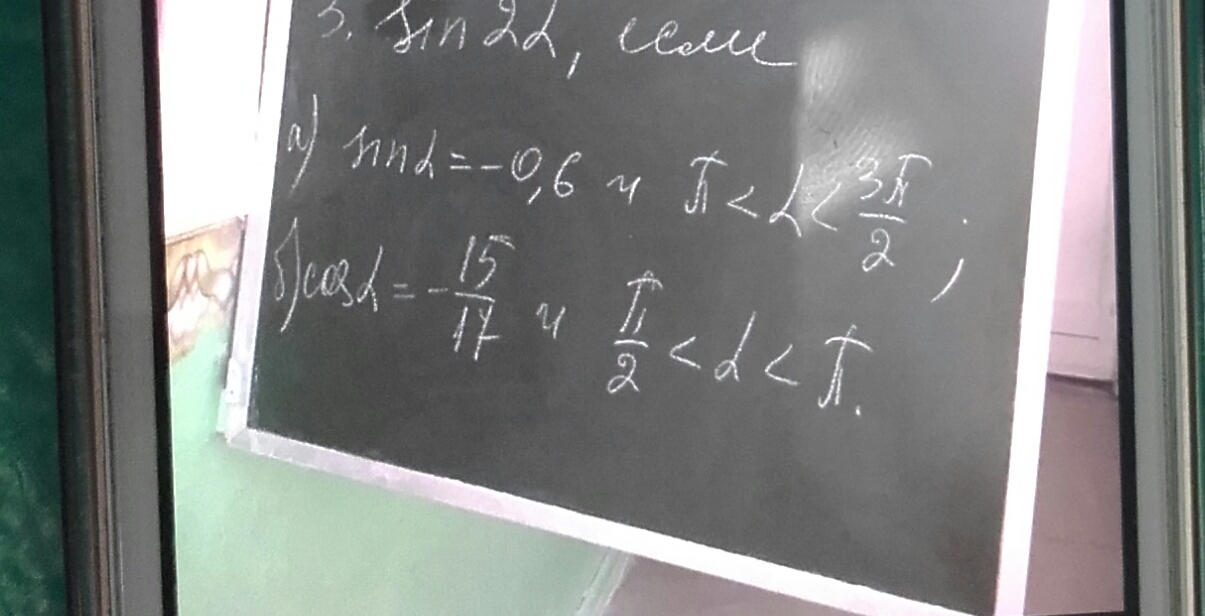 3. sin 2α, если
а) sinα = -0,6 и π < α < 3π/2 ;
б) cosα = - 15/17 и π/2 < α < π.